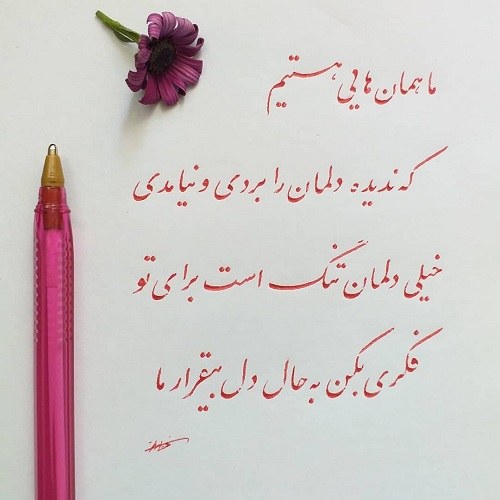 ما همان هایی هستیم
که ندیده دلمان را بردی و نیامدی
خیلی دلمان تنگ است برای تو
فکری بکن به حال دل بیقرار ما